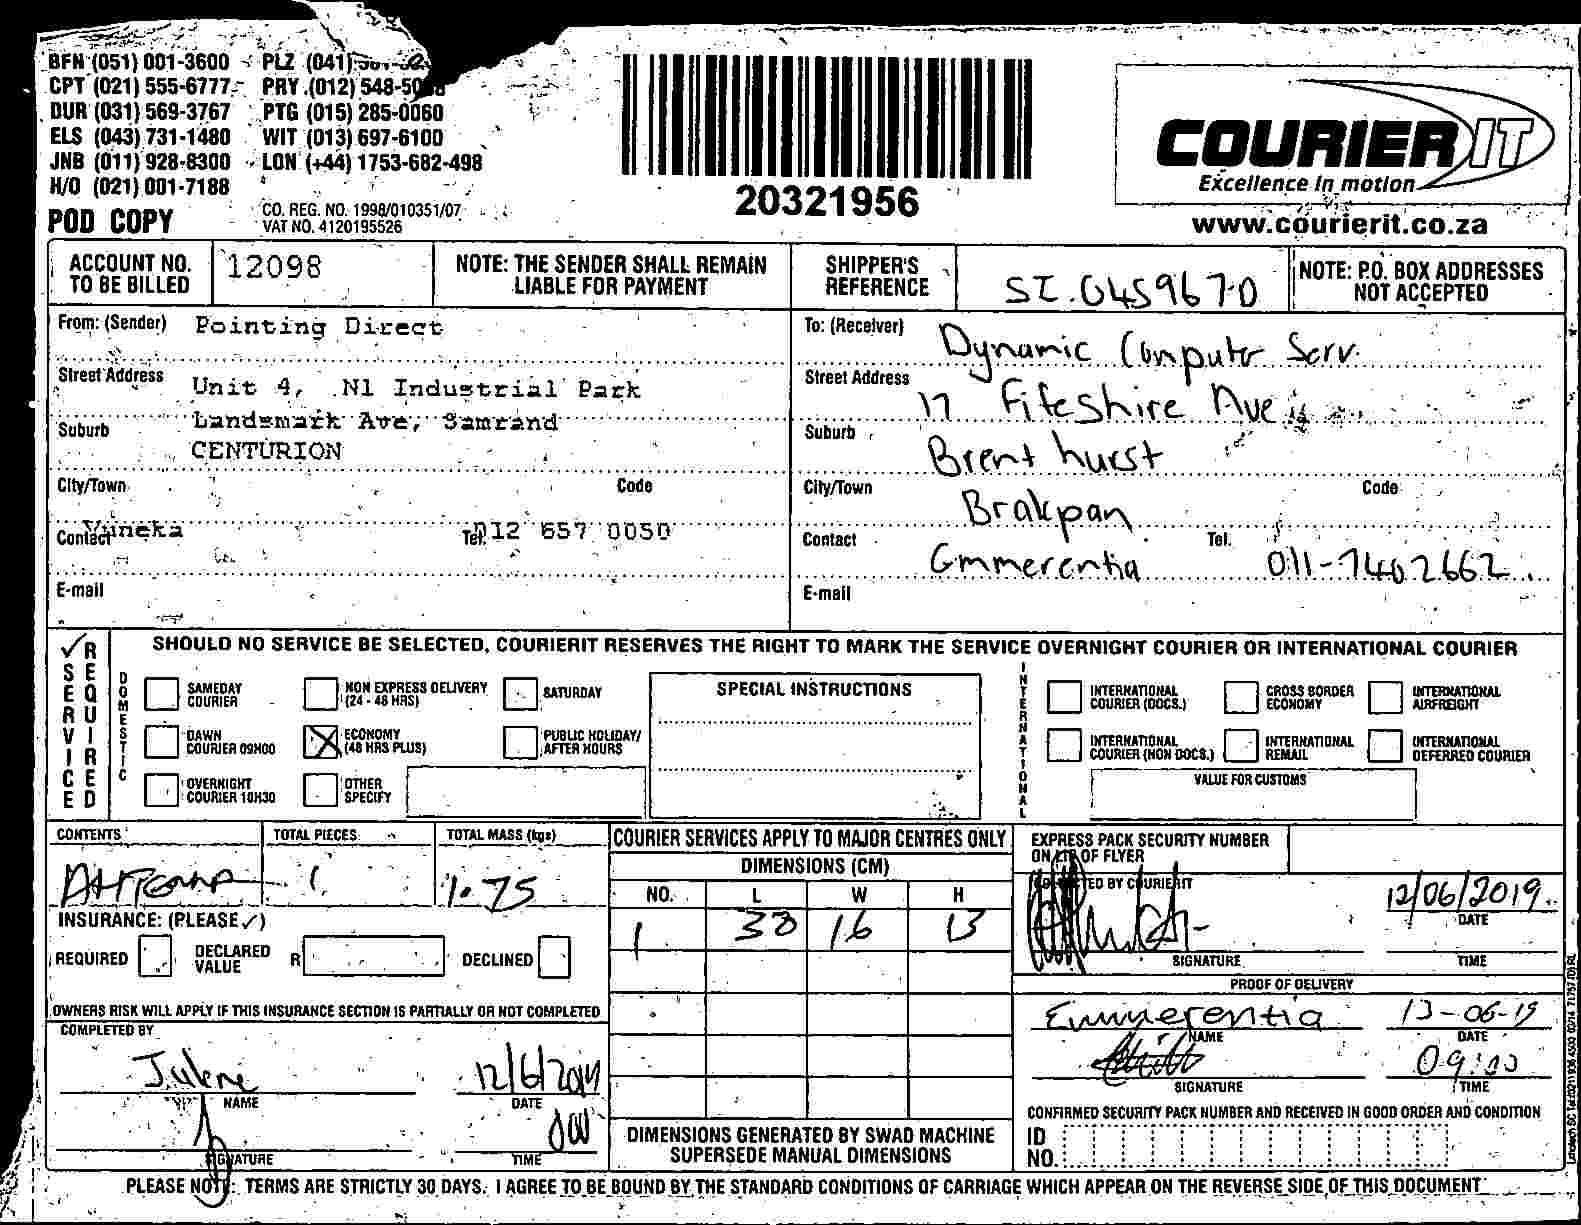 BFN (051) 001-3600 PLZ (041)
CPT (021) 555-6777 PRY (012) 548-50
DUR (031) 569-3767 PTG (015) 285-0060
ELS (043) 731-1480 WIT (013) 697-6100
JNB (011) 928-8300 LON (+44) 1753-682-498
H/O (021) 001-7188
POD COPY
CO. REG. NO. 1998/010351/07
VAT NO. 4120195526
20321956
COURIER IT
Excellence in motion
www.courierit.co.za
ACCOUNT NO. TO BE BILLED
12098
NOTE: THE SENDER SHALL REMAIN LIABLE FOR PAYMENT
SHIPPER'S REFERENCE
NOTE: P.O. BOX ADDRESSES NOT ACCEPTED
From: (Sender) Pointing Direct
Street Address Unit 4, N1 Industrial Park
Suburb Landsmark Ave, Samrand
CENTURION
City/Town Code
Contact Yuneka Tel. 012 657 0050
E-mail
To: (Receiver) Dynamic Computer Serv.
Street Address 17 Fifeshire Ave
Suburb Brenthurst
City/Town Brakpan Code
Contact Emmerentia Tel. 011-7402662
E-mail
SERVICE REQUIRED
SHOULD NO SERVICE BE SELECTED, COURIERIT RESERVES THE RIGHT TO MARK THE SERVICE OVERNIGHT COURIER OR INTERNATIONAL COURIER
DOMESTIC
SAMEDAY COURIER
NON EXPRESS DELIVERY (24 - 48 HRS)
SATURDAY
DAWN COURIER 09H00
ECONOMY (48 HRS PLUS)
PUBLIC HOLIDAY/ AFTER HOURS
OVERNIGHT COURIER 10H30
OTHER SPECIFY
SPECIAL INSTRUCTIONS
INTERNATIONAL
INTERNATIONAL COURIER (DOCS.)
CROSS BORDER ECONOMY
INTERNATIONAL AIRFREIGHT
INTERNATIONAL COURIER (NON DOCS.)
INTERNATIONAL REMAIL
INTERNATIONAL DEFERRED COURIER
VALUE FOR CUSTOMS
CONTENTS
TOTAL PIECES 1
TOTAL MASS (kgs) 1.75
INSURANCE: (PLEASE ✓)
REQUIRED DECLARED VALUE R DECLINED
OWNERS RISK WILL APPLY IF THIS INSURANCE SECTION IS PARTIALLY OR NOT COMPLETED
COMPLETED BY
Julene 12/6/2019
NAME DATE
SIGNATURE TIME
COURIER SERVICES APPLY TO MAJOR CENTRES ONLY
DIMENSIONS (CM)
NO. L W H
1 38 16 13
DIMENSIONS GENERATED BY SWAD MACHINE SUPERSEDE MANUAL DIMENSIONS
EXPRESS PACK SECURITY NUMBER
ON LIP OF FLYER
BY COURIERIT
12/06/2019
DATE
SIGNATURE TIME
PROOF OF DELIVERY
Emmerentia 13-06-19
NAME DATE
09:00
SIGNATURE TIME
CONFIRMED SECURITY PACK NUMBER AND RECEIVED IN GOOD ORDER AND CONDITION
ID NO.
PLEASE NOTE: TERMS ARE STRICTLY 30 DAYS. I AGREE TO BE BOUND BY THE STANDARD CONDITIONS OF CARRIAGE WHICH APPEAR ON THE REVERSE SIDE OF THIS DOCUMENT